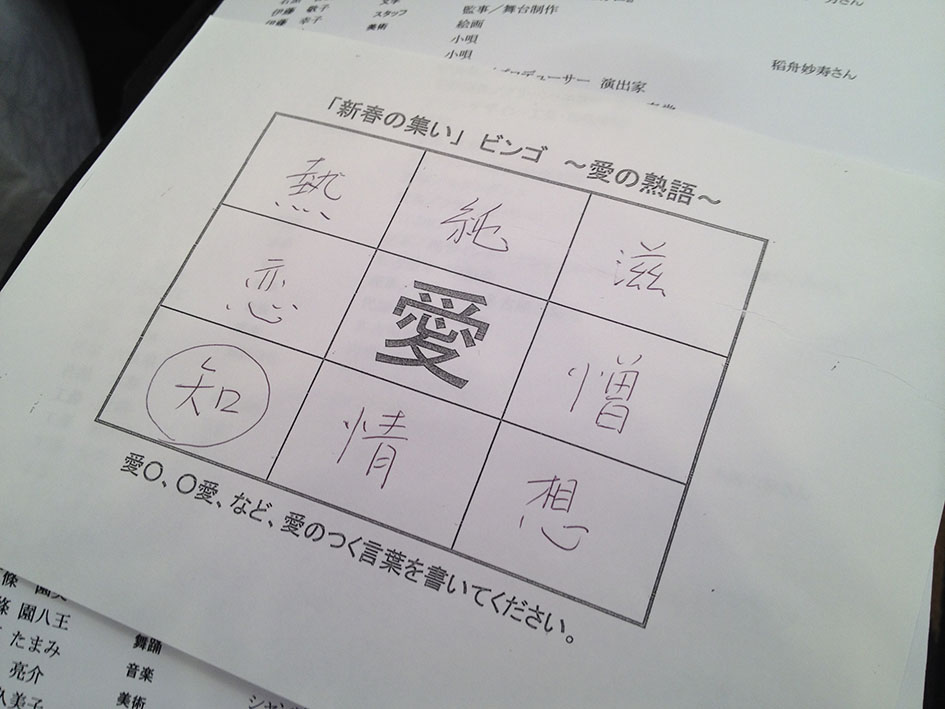 伊藤 敬子 スタッフ 監事／舞台制作
伊藤 幸子 美術 絵画
小唄
小唄 稲舟妙寿さん
デューサー 演出家
「新春の集い」 ビンゴ ～愛の熟語～
熱 純 滋
恋 愛 憎
知 情 想
愛〇、〇愛、など、愛のつく言葉を書いてください。
園八王
たまみ 舞踊
亮介 音楽
久美子 美術